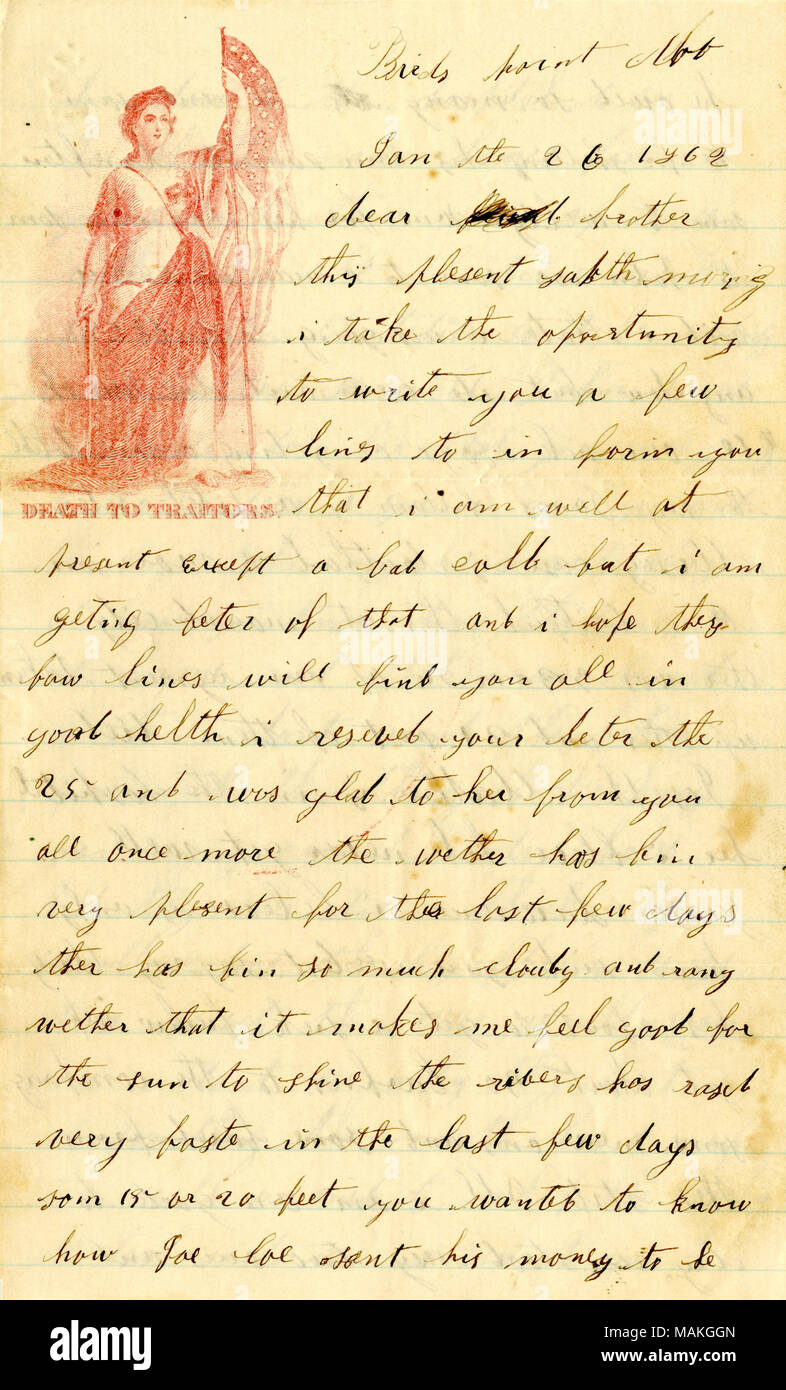 Birds point Mo
Jan the 26 1862
dear brother
this plesent sabth
i take the oportunity
to write you a few
lines to in form you
that i am well at
DEATH TO TRAITORS.
present except a bad cold but i am
geting beter of that and i hope these
faw lines will find you all in
good helth i reseved your leter the
25 and was glad to her from you
all once more the wether has bin
very plesent for the last few days
ther has bin so much cloudy and rany
wether that it makes me feel good for
the sun to shine the rivers has rased
very faste in the last few days
som 15 or 20 feet you wanted to know
how Joe sent his money to be
alamy
alamy
alamy
alamy
alamy
Image ID: MAKGGN
www.alamy.com